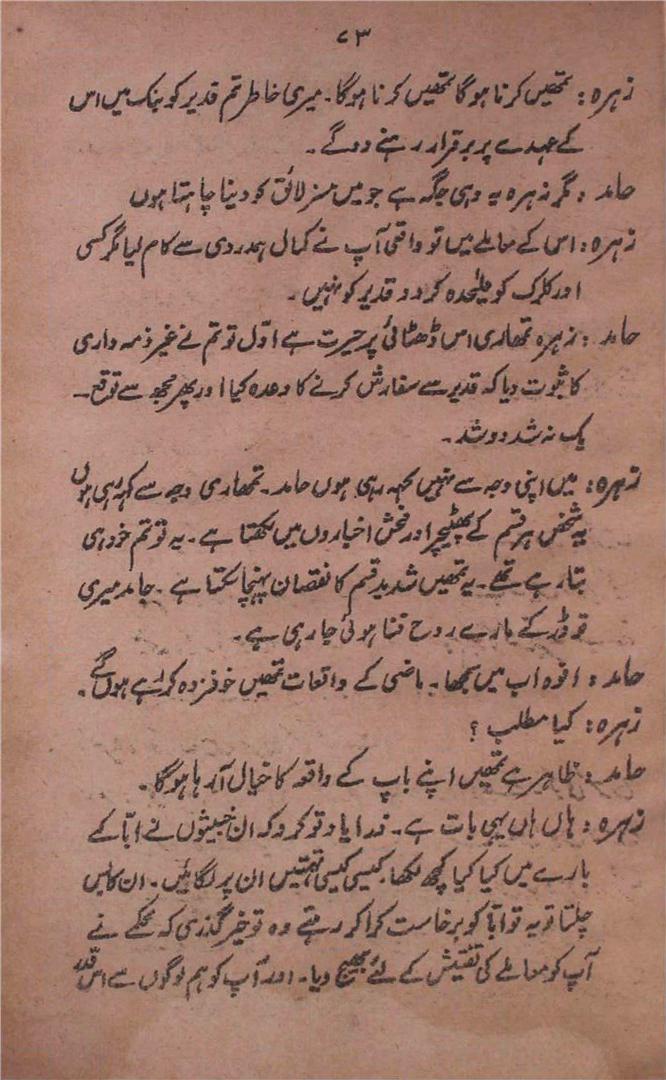 ۷۳
زہرہ : تمھیں کرنا ہوگا تمھیں کرنا ہوگا۔ میری خاطر تم قدیر کو بنک میں اس
کے عہدے پر برقرار رہنے دو گے۔
حامد : مگر زہرہ یہ وہی جگہ ہے جو میں مسز لائق کو دینا چاہتا ہوں
زہرہ : اس کے معاملے میں تو واقعی آپ نے کمال ہمدردی سے کام لیا مگر کسی
اور کلرک کو علیٰحدہ کر دو قدیر کو نہیں۔
حامد : زہرہ تمھاری اس ڈھٹائی پر حیرت ہے اوّل تو تم نے غیر ذمہ داری
کا ثبوت دیا کہ قدیر سے سفارش کرنے کا وعدہ کیا اور پھر مجھ سے توقع۔
یک نہ شد دو شد۔
زہرہ : میں اپنی وجہ سے نہیں کہہ رہی ہوں حامد۔ تمھاری وجہ سے کہہ رہی ہوں
یہ شخص ہر قسم کے پھٹیچر اور فحش اخباروں میں لکھتا ہے۔ یہ تو تم خود ہی
بتا رہے تھے۔ یہ تمھیں شدید قسم کا نقصان پہنچا سکتا ہے۔ حامد میری
تو ڈر کے مارے روح فنا ہوئی جا رہی ہے۔
حامد : افوہ اب میں سمجھا۔ ماضی کے واقعات تمھیں خوفزدہ کر رہے ہوں گے۔
زہرہ : کیا مطلب ؟
حامد : ظاہر ہے تمھیں اپنے باپ کے واقعہ کا خیال آ رہا ہوگا۔
زہرہ : ہاں ہاں یہی بات ہے۔ ذرا یاد تو کرو کہ ان خبیثوں نے ابّا کے
بارے میں کیا کیا کچھ لکھا۔ کیسی کیسی تہمتیں ان پر لگائیں۔ ان کا بس
چلتا تو یہ تو ابّا کو برخاست کرا کر رہتے وہ تو خیر گذری کہ محکمے نے
آپ کو معاملے کی تفتیش کے لئے بھیج دیا۔ اور آپ کو ہم لوگوں سے اس قدر